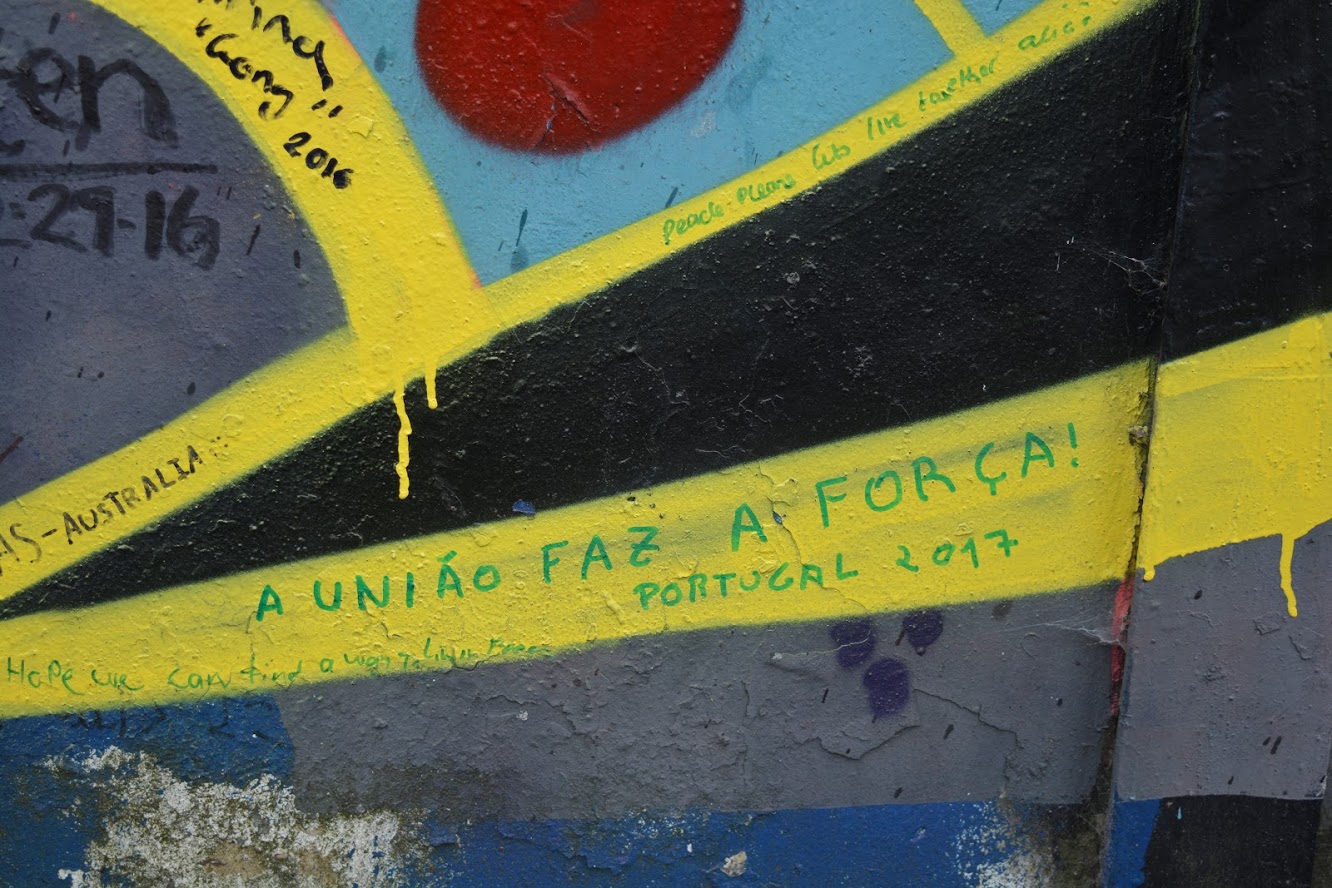 "Gang"
2016
2-29-16"
Peace-Please lets live together
AS-AUSTRALIA
A UNIÁO FAZ A FORÇA!
PORTUGAL 2017
Hope we can find a way